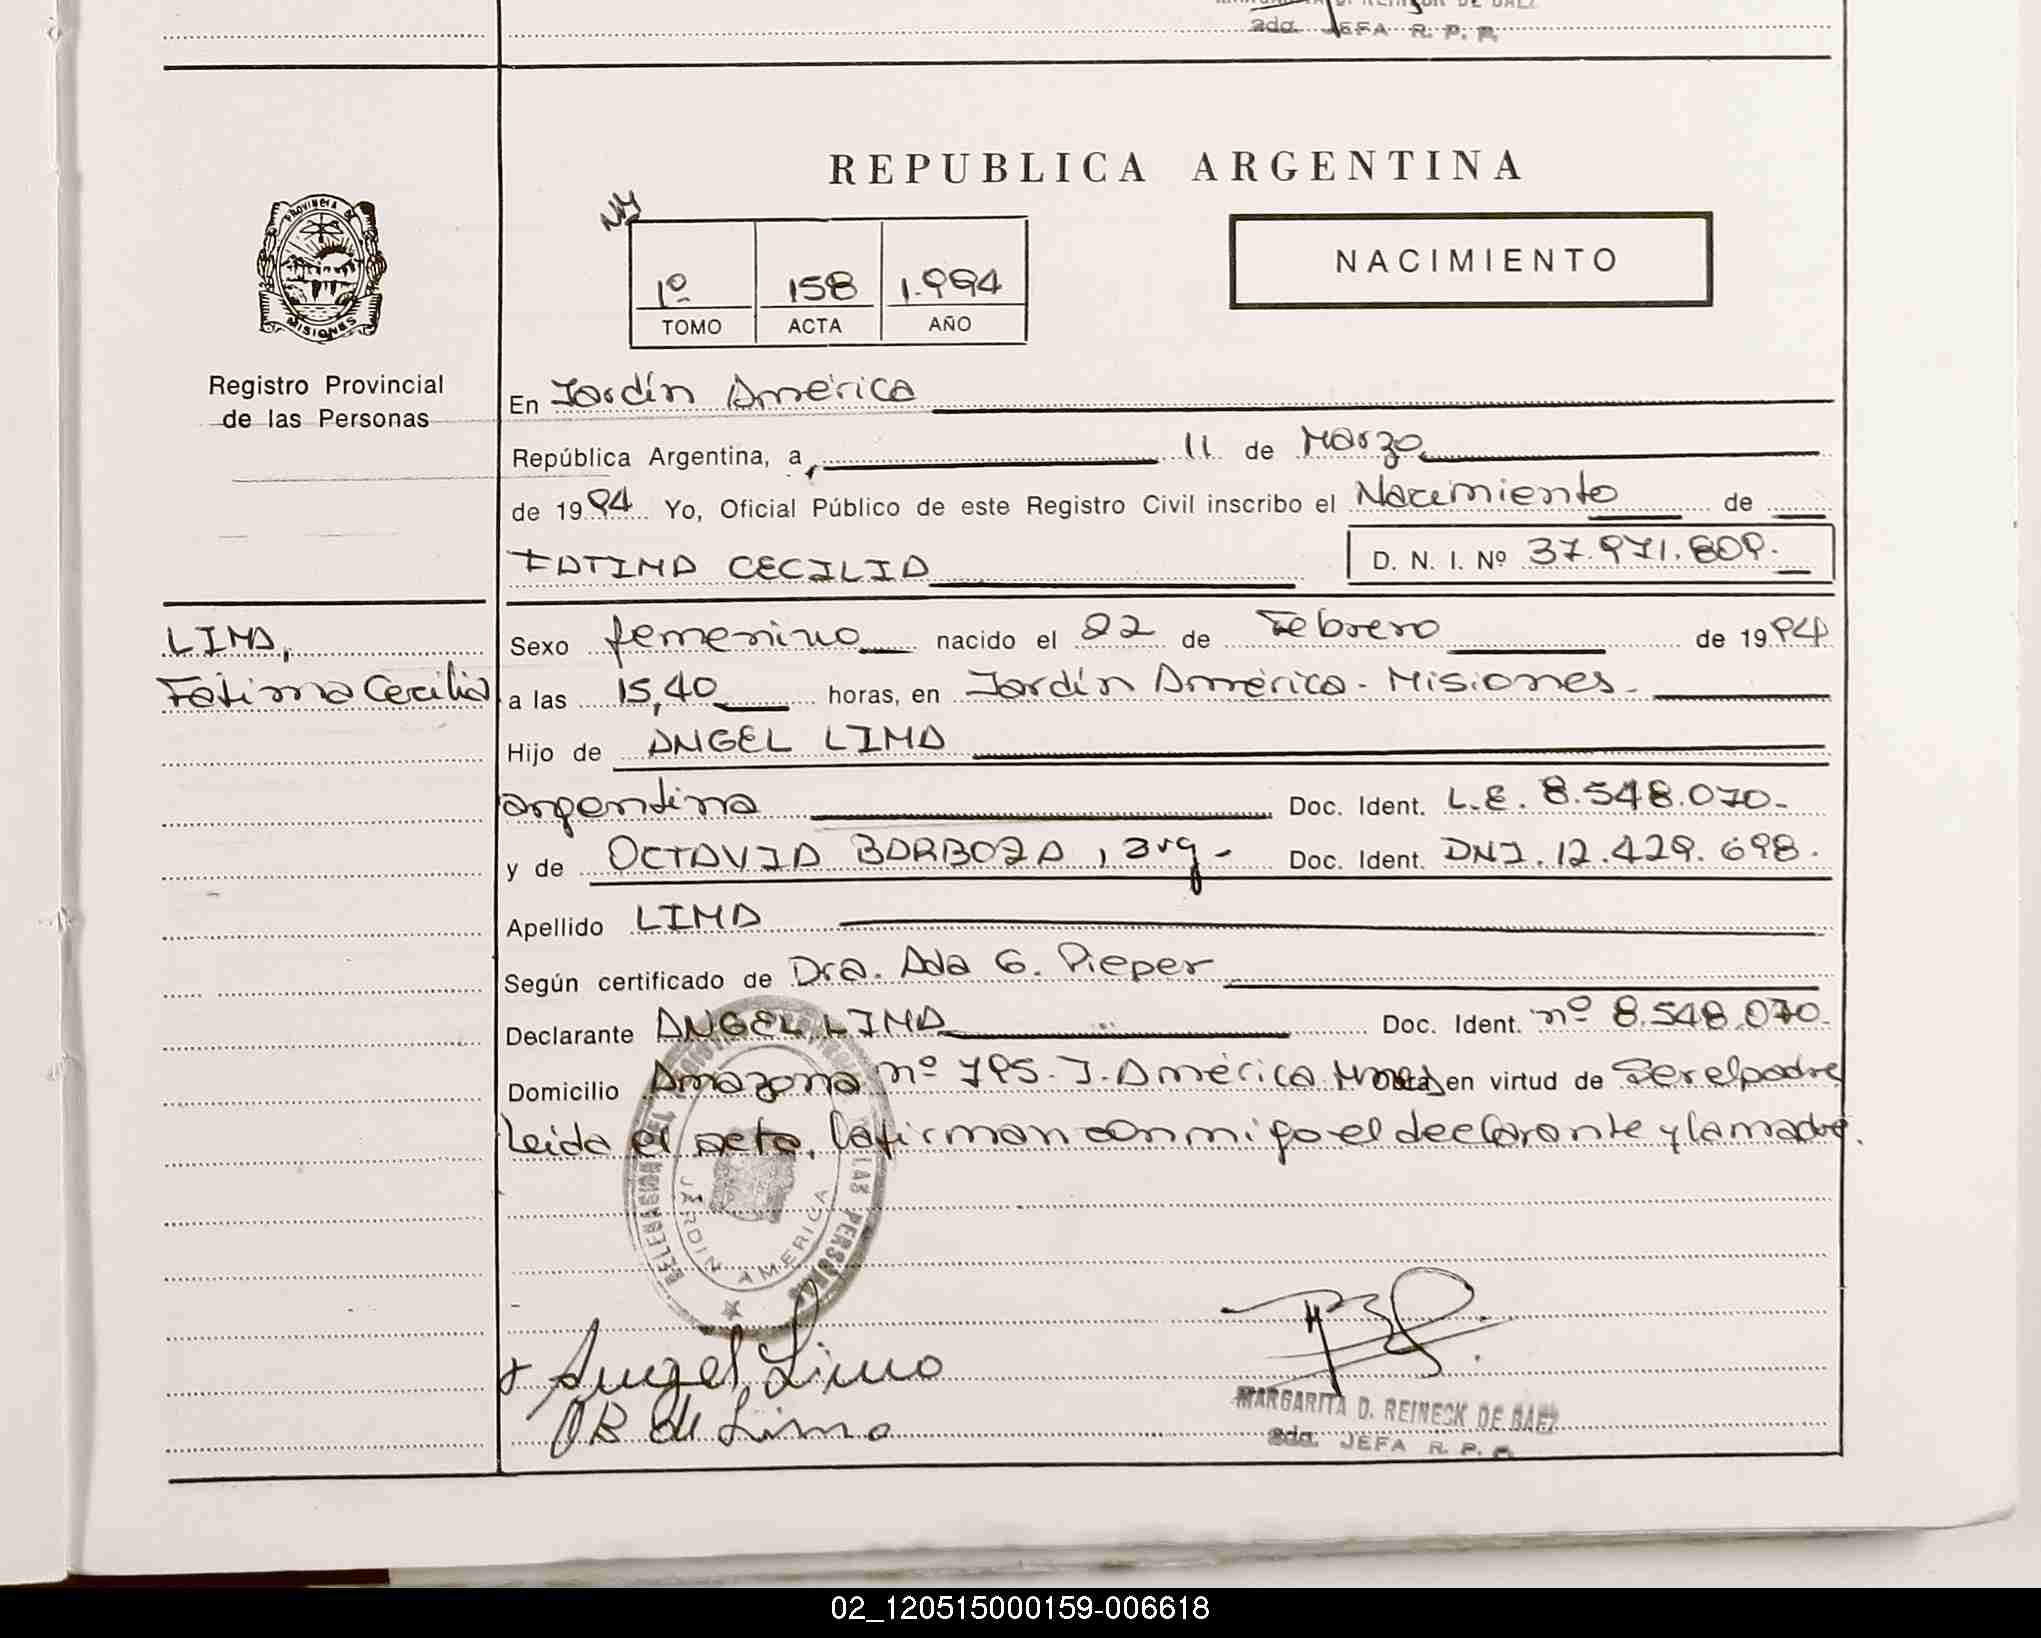 2da. JEFA R. P. P.
REPUBLICA ARGENTINA
PROVINCIA DE
MISIONES
Registro Provincial
de las Personas
1º 158 1.994
TOMO ACTA AÑO
NACIMIENTO
En Jardín América
República Argentina, a 11 de Marzo
de 1994 Yo, Oficial Público de este Registro Civil inscribo el Nacimiento de
FATIMA CECILIA D. N. I. Nº 37.971.809.
LIMA,
Fatima Cecilia
Sexo femenino nacido el 22 de Febrero de 1994
a las 15,40 horas, en Jardín América - Misiones -
Hijo de ANGEL LIMA
argentina Doc. Ident. L.E. 8.548.070-
y de OCTAVIA BARBOZA, arg- Doc. Ident. DNI. 12.429.698.
Apellido LIMA
Según certificado de Dra. Ada G. Pieper
Declarante ANGEL LIMA Doc. Ident. nº 8.548.070-
Domicilio Amazona nº 795- J. América en virtud de Ser el padre
Leida el acta, la firman conmigo el declarante y la madre.
LAS PERSONAS
JARDIN AMERICA
Angel Lima
OB de Lima
MARGARITA D. REINECK DE BAEZ
2da. JEFA R. P. P.
02_120515000159-006618